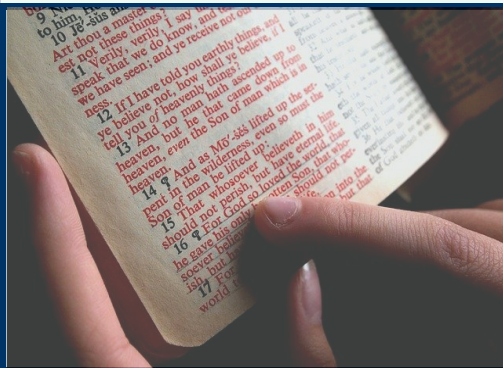 9 Ni
to him, H
10 Jē'-sŭs an
Art thou a master
est not these things?
11 Verily, verily, I say
speak that we do know, and te
we have seen; and ye receive not our
ness.
12 If I have told you earthly things, and
ye believe not, how shall ye believe, if I
tell you of heavenly things?
13 And no man hath ascended up to
heaven, but he that came down from
heaven, even the Son of man which is in
heaven.
14 ¶ And as Mō'-sĕs lifted up the ser-
pent in the wilderness, even so must the
Son of man be lifted up:
15 That whosoever believeth in him
should not perish, but have eternal life.
16 ¶ For God so loved the world, that
he gave his only otten Son, that who-
soever belie should not per-
ish, but h
17 For on into the
world but that